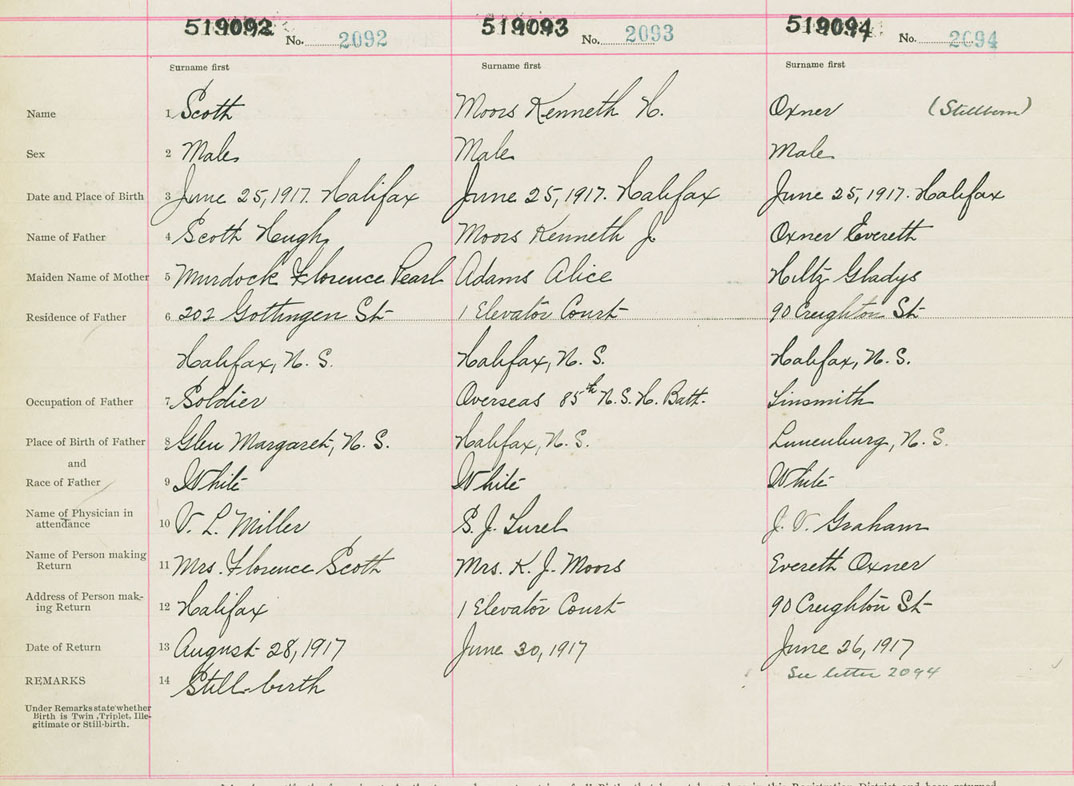 519092 No. 2092 519093 No. 2093 519094 No. 2094
Surname first Surname first Surname first
Name 1 Scott Moors Kenneth H. Oxner (Stillborn)
Sex 2 Male Male Male
Date and Place of Birth 3 June 25, 1917. Halifax June 25, 1917. Halifax June 25, 1917. Halifax
Name of Father 4 Scott Hugh Moors Kenneth J. Oxner Everett
Maiden Name of Mother 5 Murdock Florence Pearl Adams Alice Hiltz Gladys
Residence of Father 6 202 Gottingen St 1 Elevator Court 90 Creighton St
Halifax, N. S. Halifax, N. S. Halifax, N. S.
Occupation of Father 7 Soldier Overseas 85th N. S. H. Batt. Tinsmith
Place of Birth of Father 8 Glen Margaret, N. S. Halifax, N. S. Lunenburg, N. S.
and
Race of Father 9 White White White
Name of Physician in
attendance 10 V. L. Miller S. J. J. V. Graham
Name of Person making
Return 11 Mrs. Florence Scott Mrs. K. J. Moors Everett Oxner
Address of Person mak-
ing Return 12 Halifax 1 Elevator Court 90 Creighton St
Date of Return 13 August 28, 1917 June 30, 1917 June 26, 1917
REMARKS 14 Still-birth See letter 2094
Under Remarks state whether
Birth is Twin, Triplet, Ille-
gitimate or Still-birth.